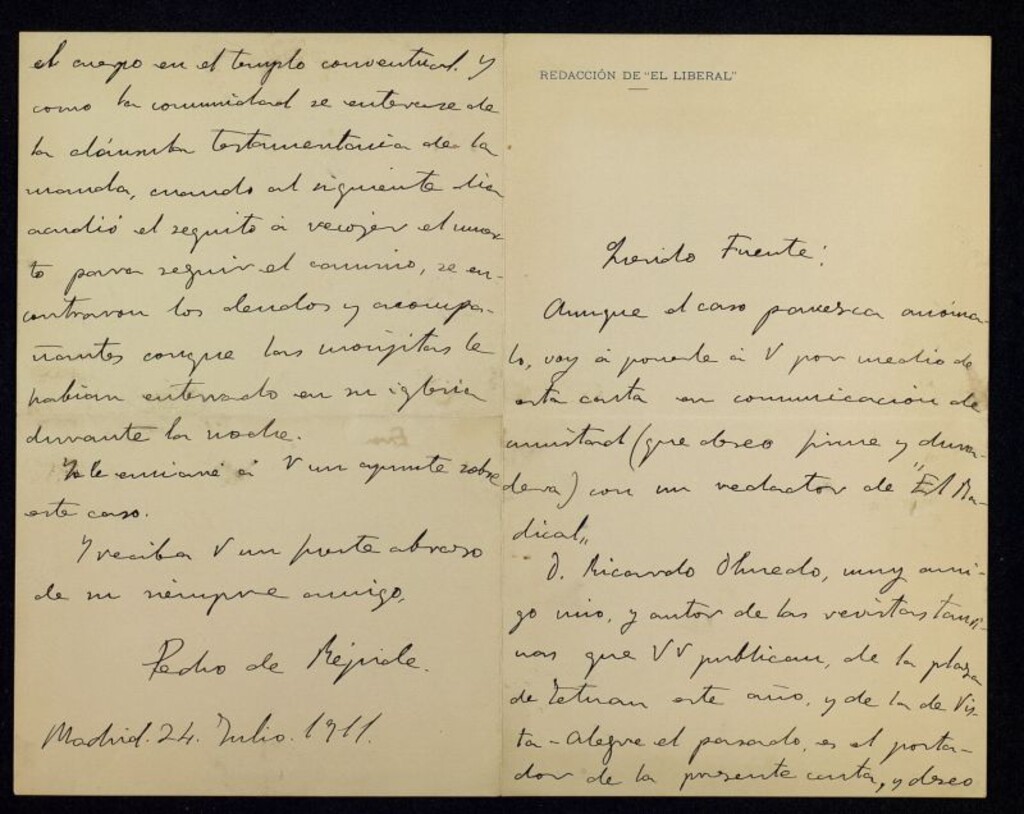 REDACCIÓN DE "EL LIBERAL"
Querido Fuente:
Aunque el caso parezca anóma-
lo, voy á ponerle á V por medio de
esta carta en comunicación de
amistad (que deseo firme y dura-
dera) con un redactor de "El Ra-
dical„
D. Ricardo Olmedo, muy ami-
go mio, y autor de las revistas tauri-
nas que VV publican, de la plaza
de Tetuan este año, y de la de Vis-
ta-Alegre el pasado, es el porta-
dor de la presente carta, y deseo
el cuerpo en el templo conventual. Y
como la comunidad se enterase de
la cláusula testamentaria de la
manda, cuando al siguiente dia
acudió el seguito á recojer el muer-
to para seguir el camino, se en-
contraron los deudos y acompa-
ñantes conque las monjitas le
habian enterrado en su iglesia
durante la noche.
Ya le enviaré á V un apunte sobre
este caso.
Y reciba V un fuerte abrazo
de su siempre amigo,
Pedro de Répide.
Madrid. 24. Julio. 1911.